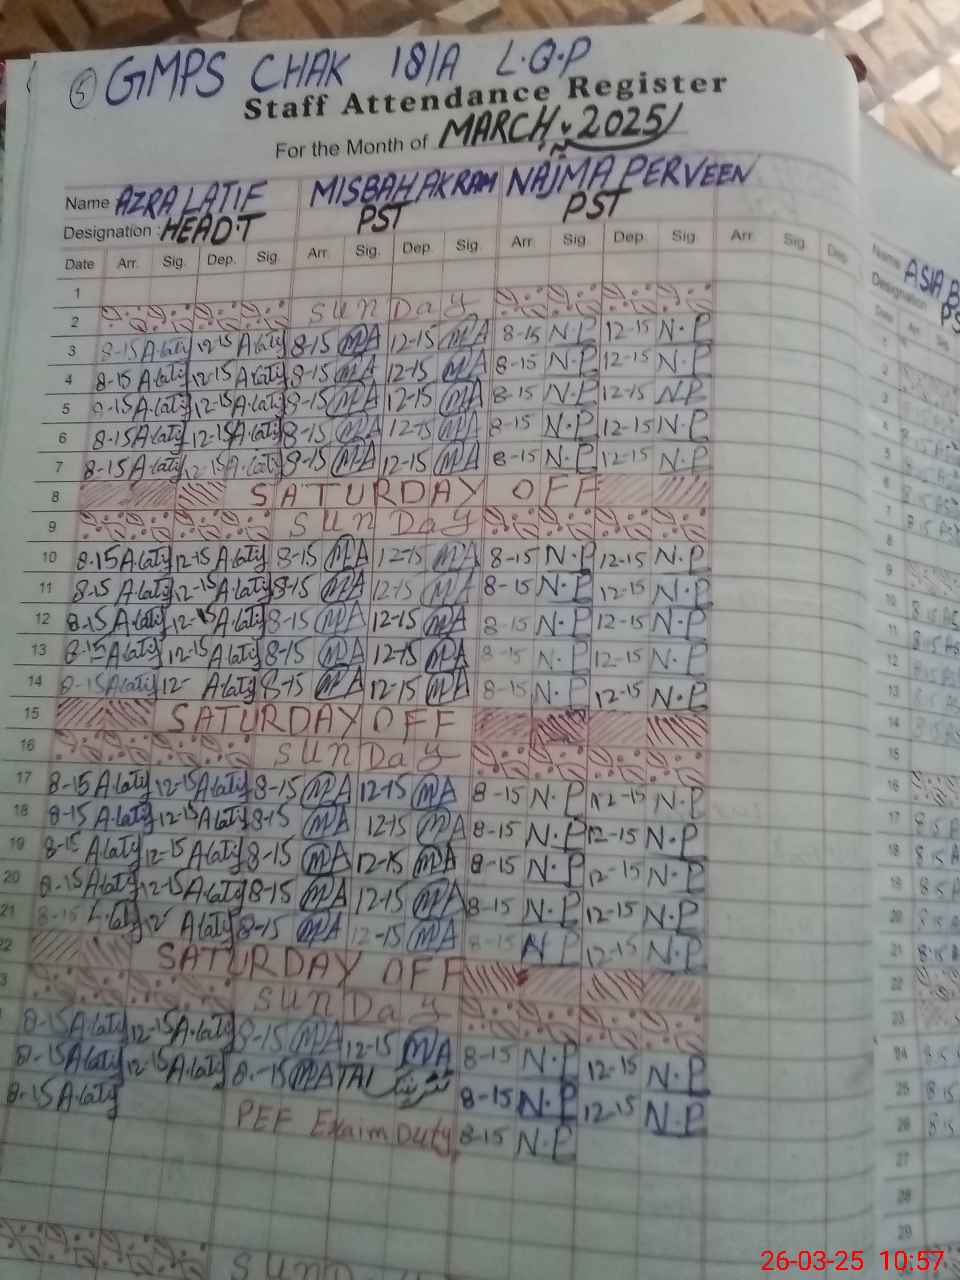 5 GMPS CHAK 18/A L.Q.P
Staff Attendance Register
For the Month of MARCH, 2025
Name AZRA LATIF MISBAH AKRAM NAJMA PERVEEN
Designation : HEAD.T PST PST
Date Arr. Sig. Dep. Sig. Arr. Sig. Dep. Sig. Arr. Sig. Dep. Sig. Arr. Sig. Dep
1
2 SUNDAY
3 8-15 A.laty 12-15 A.laty 8-15 MA 12-15 MA 8-15 N.P 12-15 N.P
4 8-15 A.laty 12-15 A.laty 8-15 MA 12-15 MA 8-15 N.P 12-15 N.P
5 8-15 A.laty 12-15 A.laty 8-15 MA 12-15 MA 8-15 N.P 12-15 N.P
6 8-15 A.laty 12-15 A.laty 8-15 MA 12-15 MA 8-15 N.P 12-15 N.P
7 8-15 A.laty 12-15 A.laty 8-15 MA 12-15 MA 8-15 N.P 12-15 N.P
8 SATURDAY OFF
9 SUNDAY
10 8-15 A.laty 12-15 A.laty 8-15 MA 12-15 MA 8-15 N.P 12-15 N.P
11 8-15 A.laty 12-15 A.laty 8-15 MA 12-15 MA 8-15 N.P 12-15 N.P
12 8-15 A.laty 12-15 A.laty 8-15 MA 12-15 MA 8-15 N.P 12-15 N.P
13 8-15 A.laty 12-15 A.laty 8-15 MA 12-15 MA 8-15 N.P 12-15 N.P
14 8-15 A.laty 12- A.laty 8-15 MA 12-15 MA 8-15 N.P 12-15 N.P
15 SATURDAY OFF
16 SUNDAY
17 8-15 A.laty 12-15 A.laty 8-15 MA 12-15 MA 8-15 N.P 12-15 N.P
18 8-15 A.laty 12-15 A.laty 8-15 MA 12-15 MA 8-15 N.P 12-15 N.P
19 8-15 A.laty 12-15 A.laty 8-15 MA 12-15 MA 8-15 N.P 12-15 N.P
20 8-15 A.laty 12-15 A.laty 8-15 MA 12-15 MA 8-15 N.P 12-15 N.P
21 8-15 A.laty 12 A.laty 8-15 MA 12-15 MA 8-15 N.P 12-15 N.P
22 SATURDAY OFF
3 SUNDAY
8-15 A.laty 12-15 A.laty 8-15 MA 12-15 MA 8-15 N.P 12-15 N.P
8-15 A.laty 12-15 A.laty 8-15 MA 8-15 N.P 12-15 N.P
8-15 A.laty PEF Exaim Duty 8-15 N.P
SUNDAY
Name ASIA B
Designation PS
22
23
24
25
26
27
28
29
26-03-25 10:57